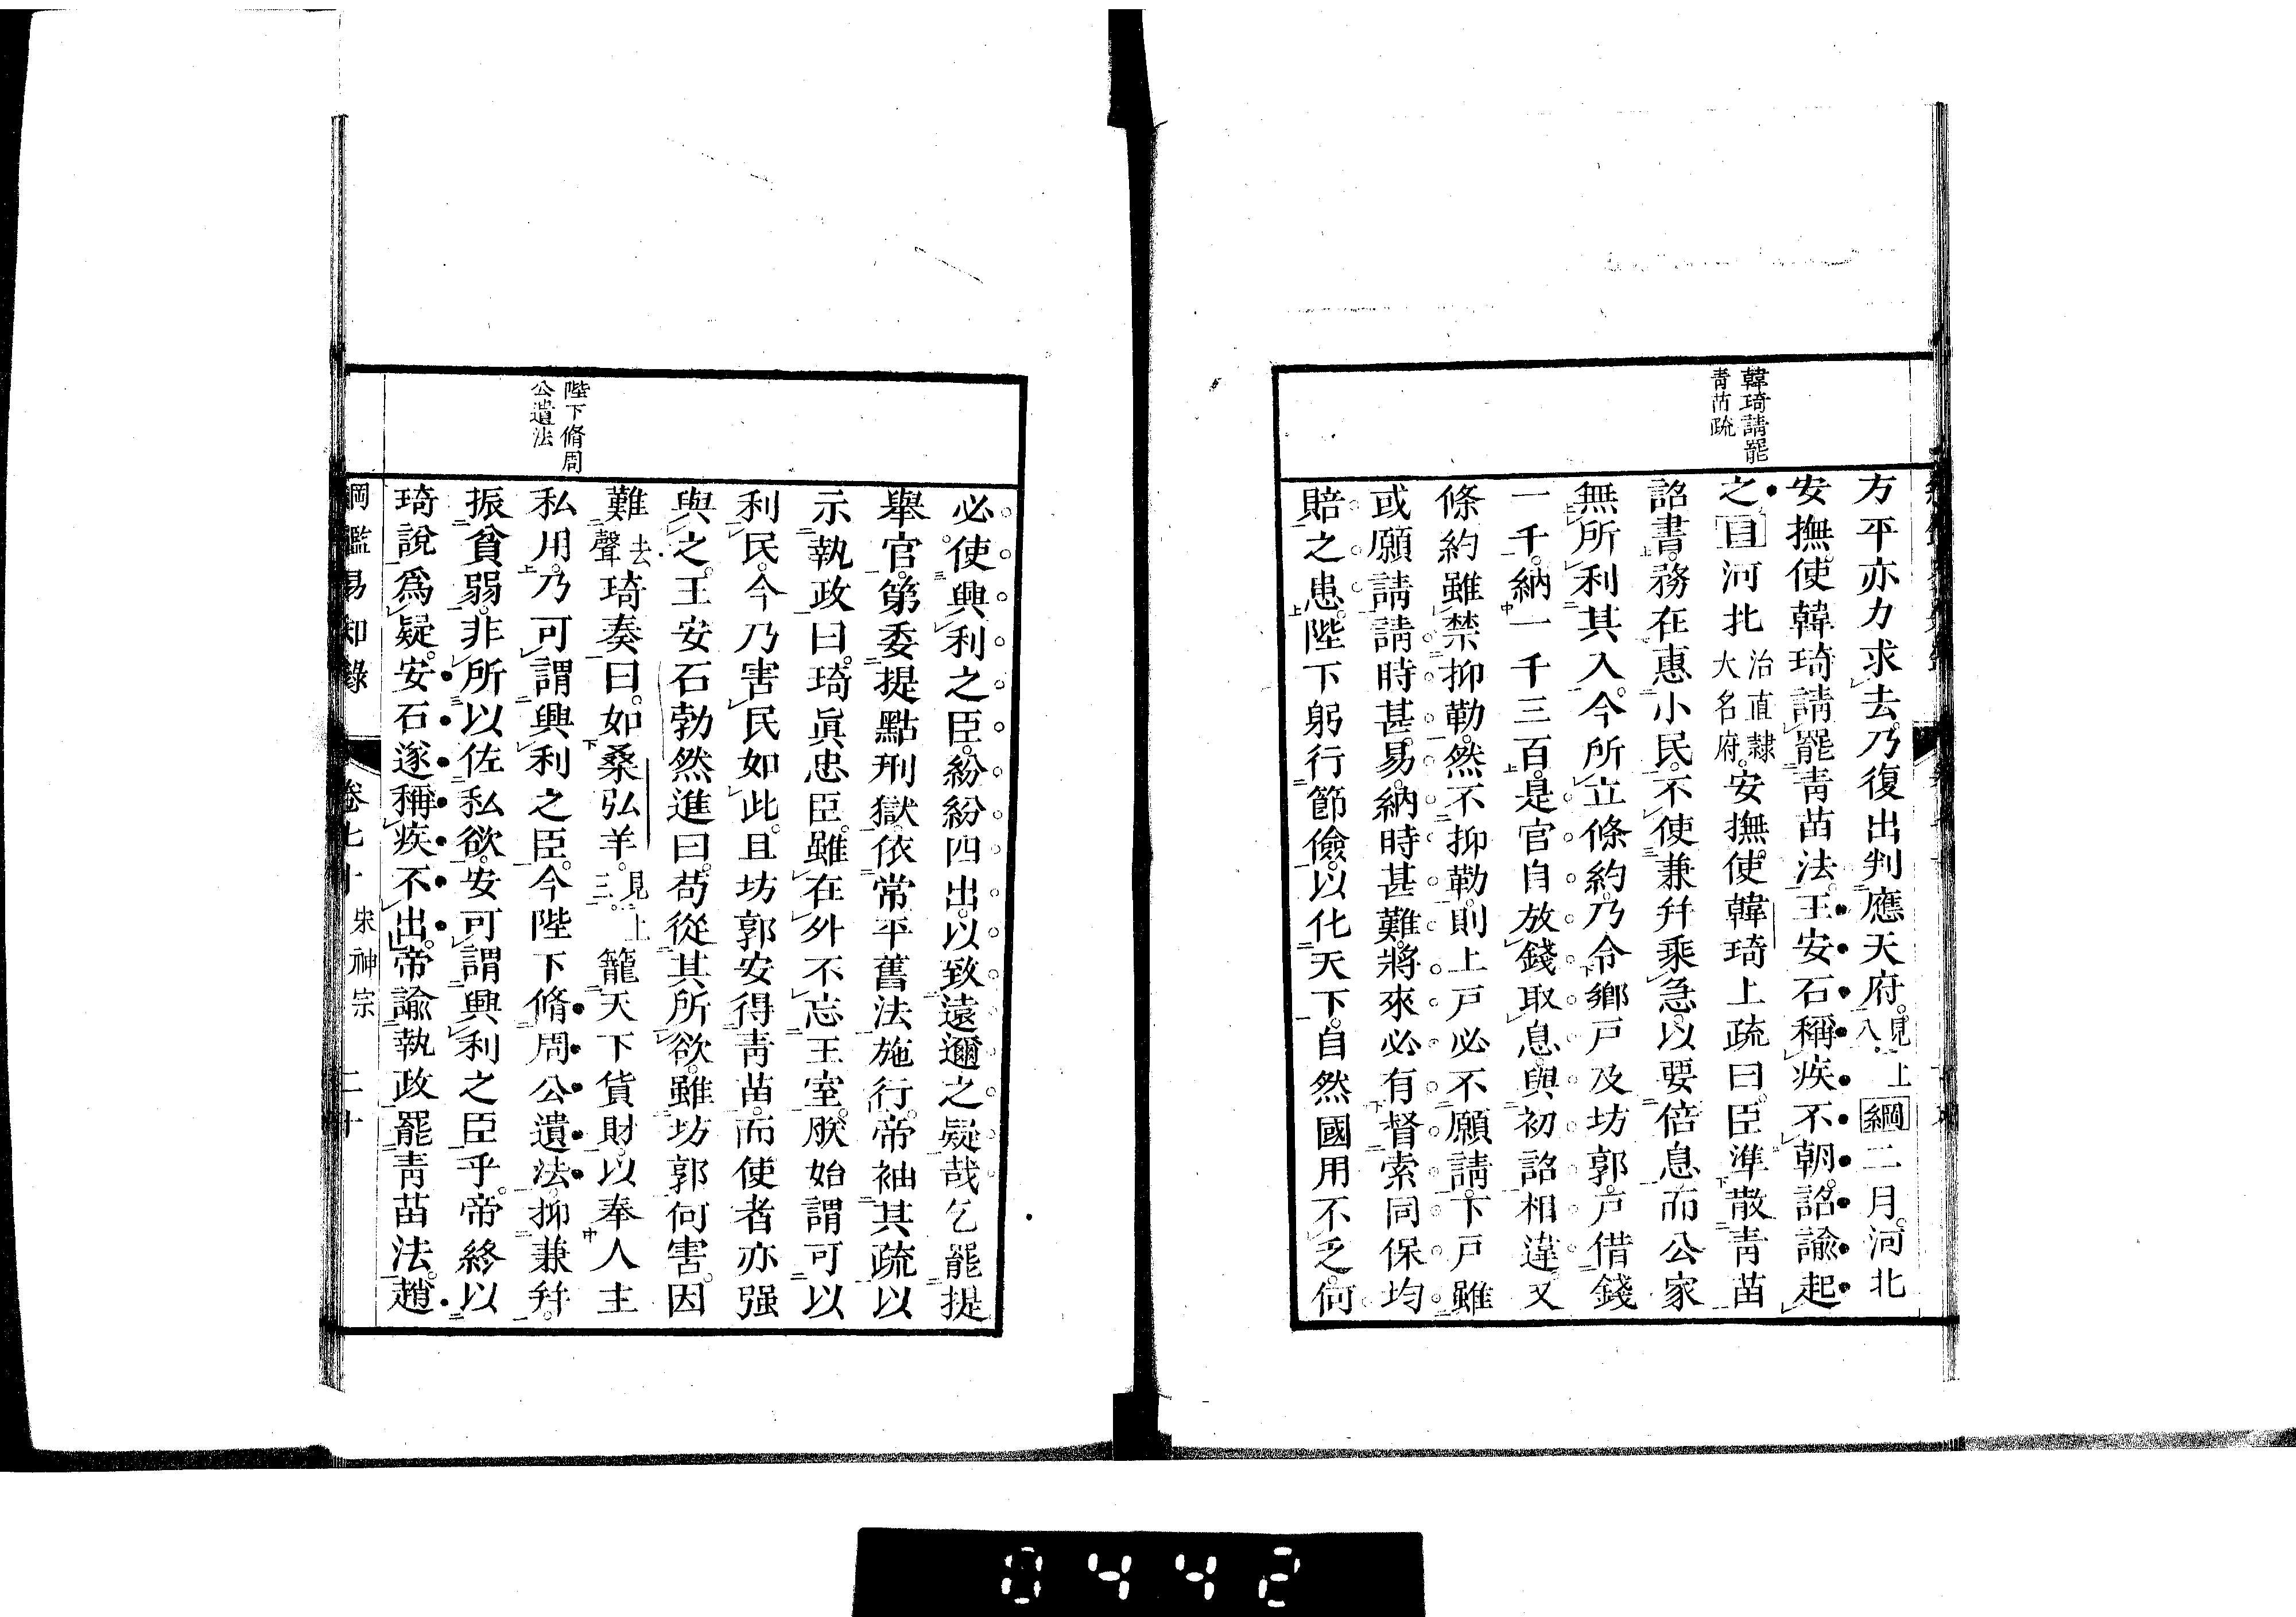 韓琦請罷
靑苗疏
方平亦力求去。乃復出判應天府。見上八。綱二月。河北
安撫使韓琦請罷靑苗法。王安石稱疾不朝。詔諭起
之。目河北治直隸大名府。安撫使韓琦上疏曰。臣準散靑苗
詔書。務在惠小民。不使兼幷乘急。以要倍息。而公家
無所利其入。今所立條約。乃令鄉戶及坊郭戶借錢
一千。納一千三百。是官自放錢取息。與初詔相違。又
條約雖禁抑勒。然不抑勒。則上戶必不願請。下戶雖
或願請。請時甚易。納時甚難。將來必有督索同保均
賠之患。陛下躬行節儉。以化天下。自然國用不乏。何
陛下脩周
公遺法
必使興利之臣。紛紛四出。以致遠邇之疑哉。乞罷提
舉官。第委提點刑獄。依常平舊法施行。帝袖其疏以
示執政曰。琦眞忠臣。雖在外不忘王室。朕始謂可以
利民。今乃害民如此。且坊郭安得靑苗。而使者亦强
與之。王安石勃然進曰。苟從其所欲。雖坊郭何害。因
難去聲琦奏曰。如桑弘羊。見上三。籠天下貨財。以奉人主
私用。乃可謂興利之臣。今陛下脩周公遺法。抑兼幷。
振貧弱。非所以佐私欲。安可謂興利之臣乎。帝終以
琦說爲疑。安石遂稱疾不出。帝諭執政罷靑苗法。趙
綱鑑易知錄 卷七十 宋神宗 二十
0442